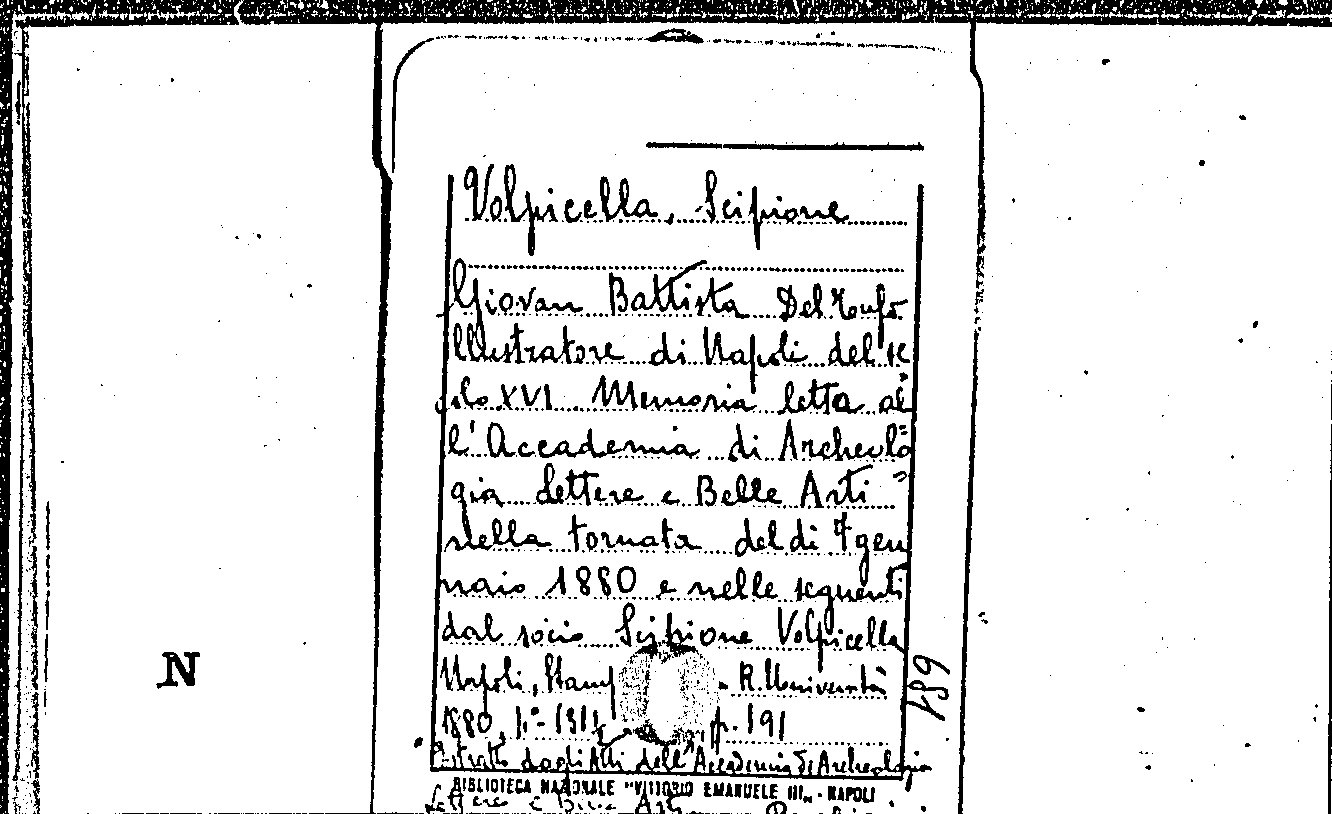 Volpicella, Scipione
Giovan Battista Del Tufo
illustratore di Napoli del se
colo XVI. Memoria letta al
l'Accademia di Archeolo
gia Lettere e Belle Arti
nella tornata del dì 7 gen
naio 1880 e nelle seguenti
dal socio Scipione Volpicella
Napoli, Stamp R. Università
1880, p. 191
Estratto dagli Atti dell'Accademia di Archeologia
BIBLIOTECA NAZIONALE "VITTORIO EMANUELE III" - NAPOLI
Lettere e Belle Arti
N
489